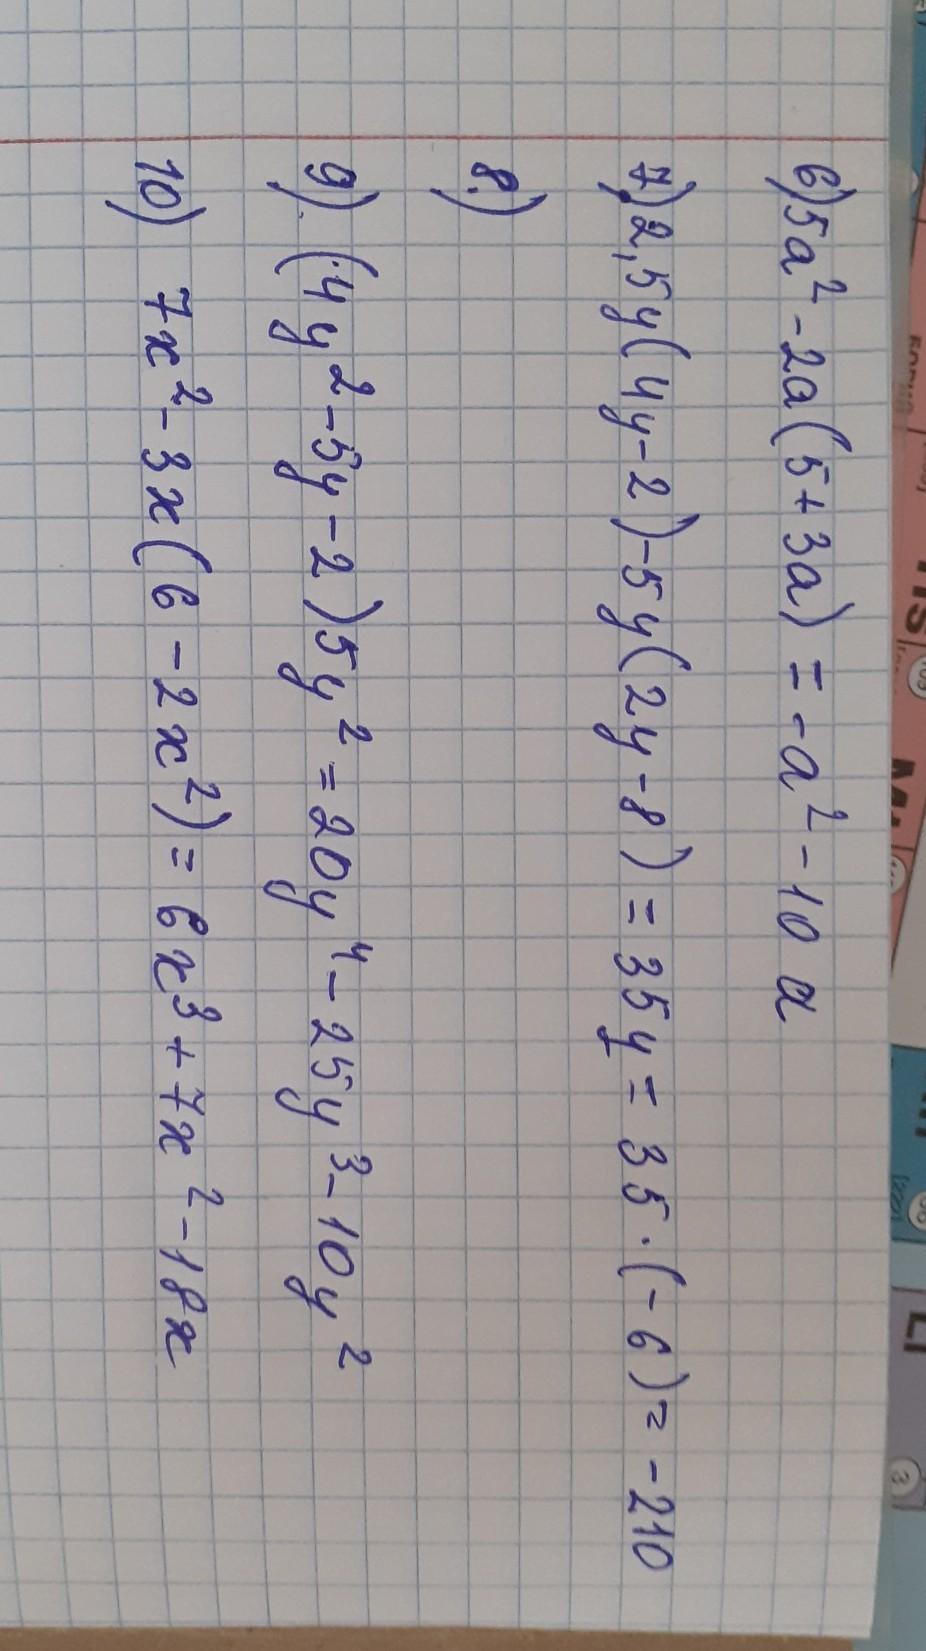 6) 5a² - 2a(5 + 3a) = - a² - 10 a
7) 2,5y(4y - 2) - 5y(2y - 8) = 35y = 35 · (- 6) = - 210
8.)
9) (4y² - 5y - 2)5y² = 20y⁴ - 25y³ - 10y²
10) 7x² - 3x(6 - 2x²) = 6x³ + 7x² - 18x